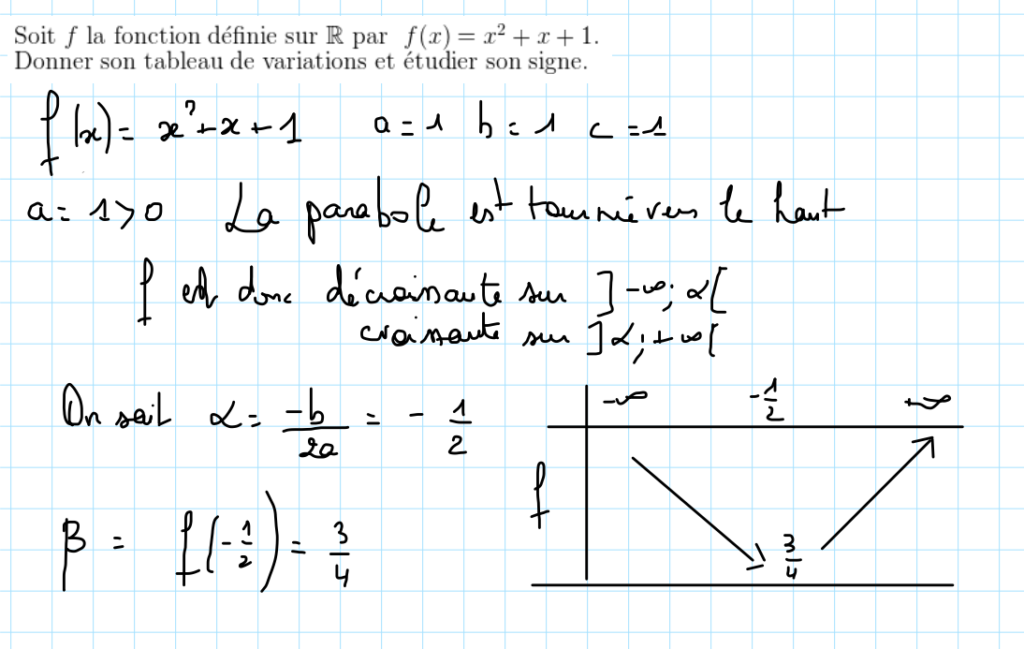 Soit f la fonction définie sur ℝ par f(x) = x² + x + 1.
Donner son tableau de variations et étudier son signe.
f(x) = x² + x + 1 a = 1 b = 1 c = 1
a = 1 > 0 La parabole est tournée vers le haut
f est donc décroissante sur ]-∞; α[
croissante sur ]α; +∞[
On sait α = -b/2a = - 1/2
β = f(-1/2) = 3/4
-∞ -1/2 +∞
f
3/4